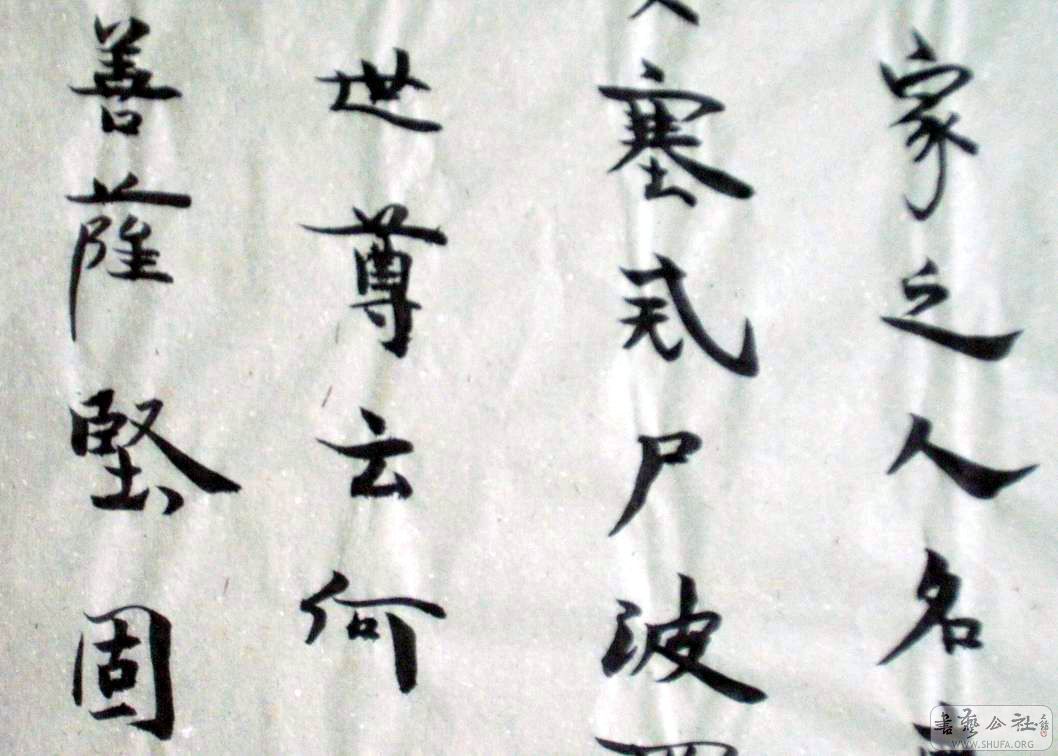 家之人名
塞尸波
世尊云何
善薩堅固
書藝公社
WWW.SHUFA.ORG